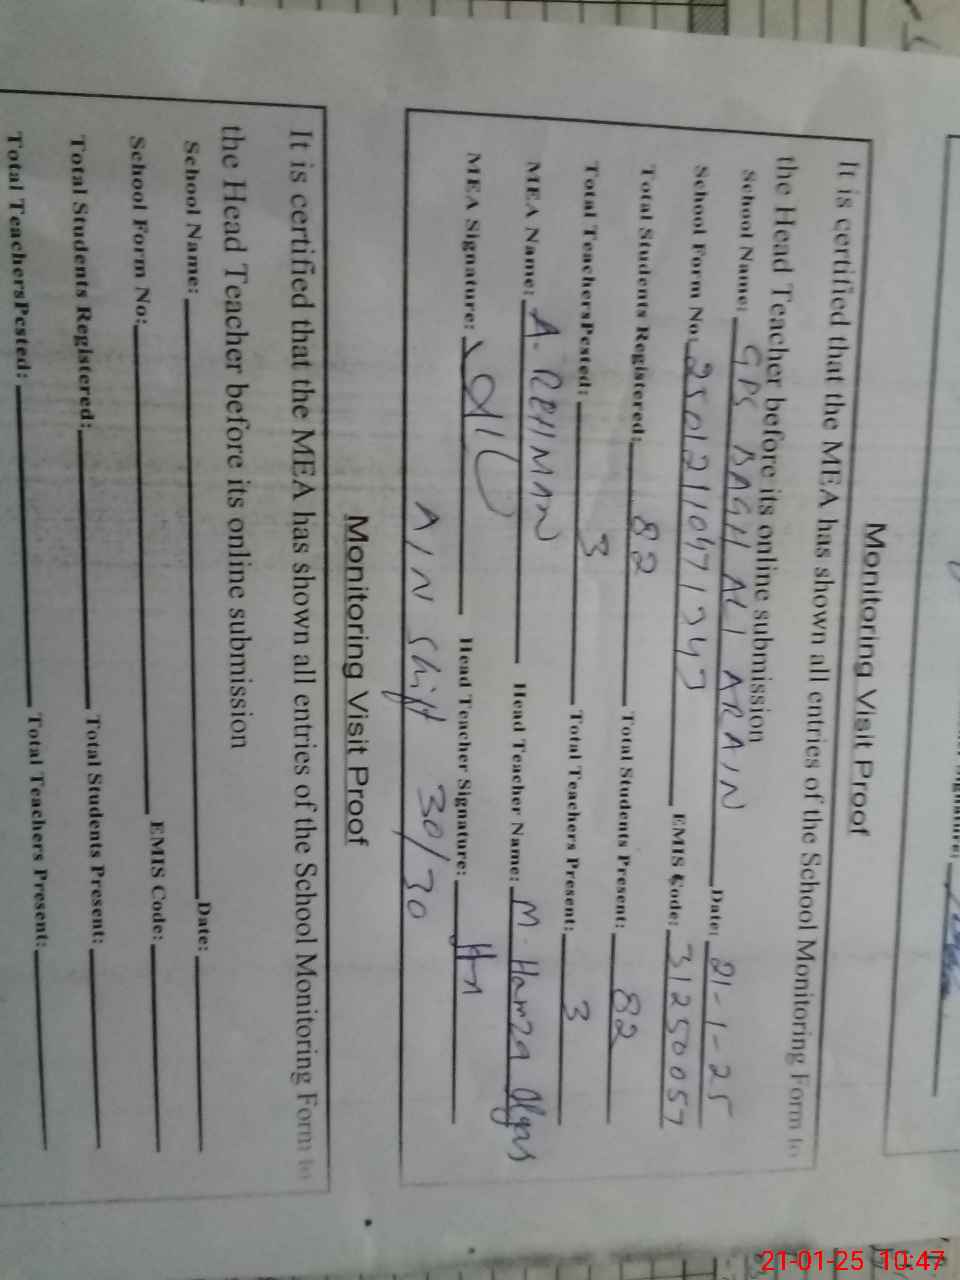 Monitoring Visit Proof
It is certified that the MEA has shown all entries of the School Monitoring Form to
the Head Teacher before its online submission
School Name: GPS BAGH ALI ARAIN Date: 21-1-25
School Form No: 25012110471343 EMIS Code: 31250057
Total Students Registered: 82 Total Students Present: 82
Total TeachersPested: 3 Total Teachers Present: 3
MEA Name: A. REHMAN Head Teacher Name: M. Hamza
MEA Signature: Head Teacher Signature:
A/N Shift 30/30
Monitoring Visit Proof
It is certified that the MEA has shown all entries of the School Monitoring Form to
the Head Teacher before its online submission
School Name: Date:
School Form No: EMIS Code:
Total Students Registered: Total Students Present:
Total TeachersPested: Total Teachers Present:
21-01-25 10:47